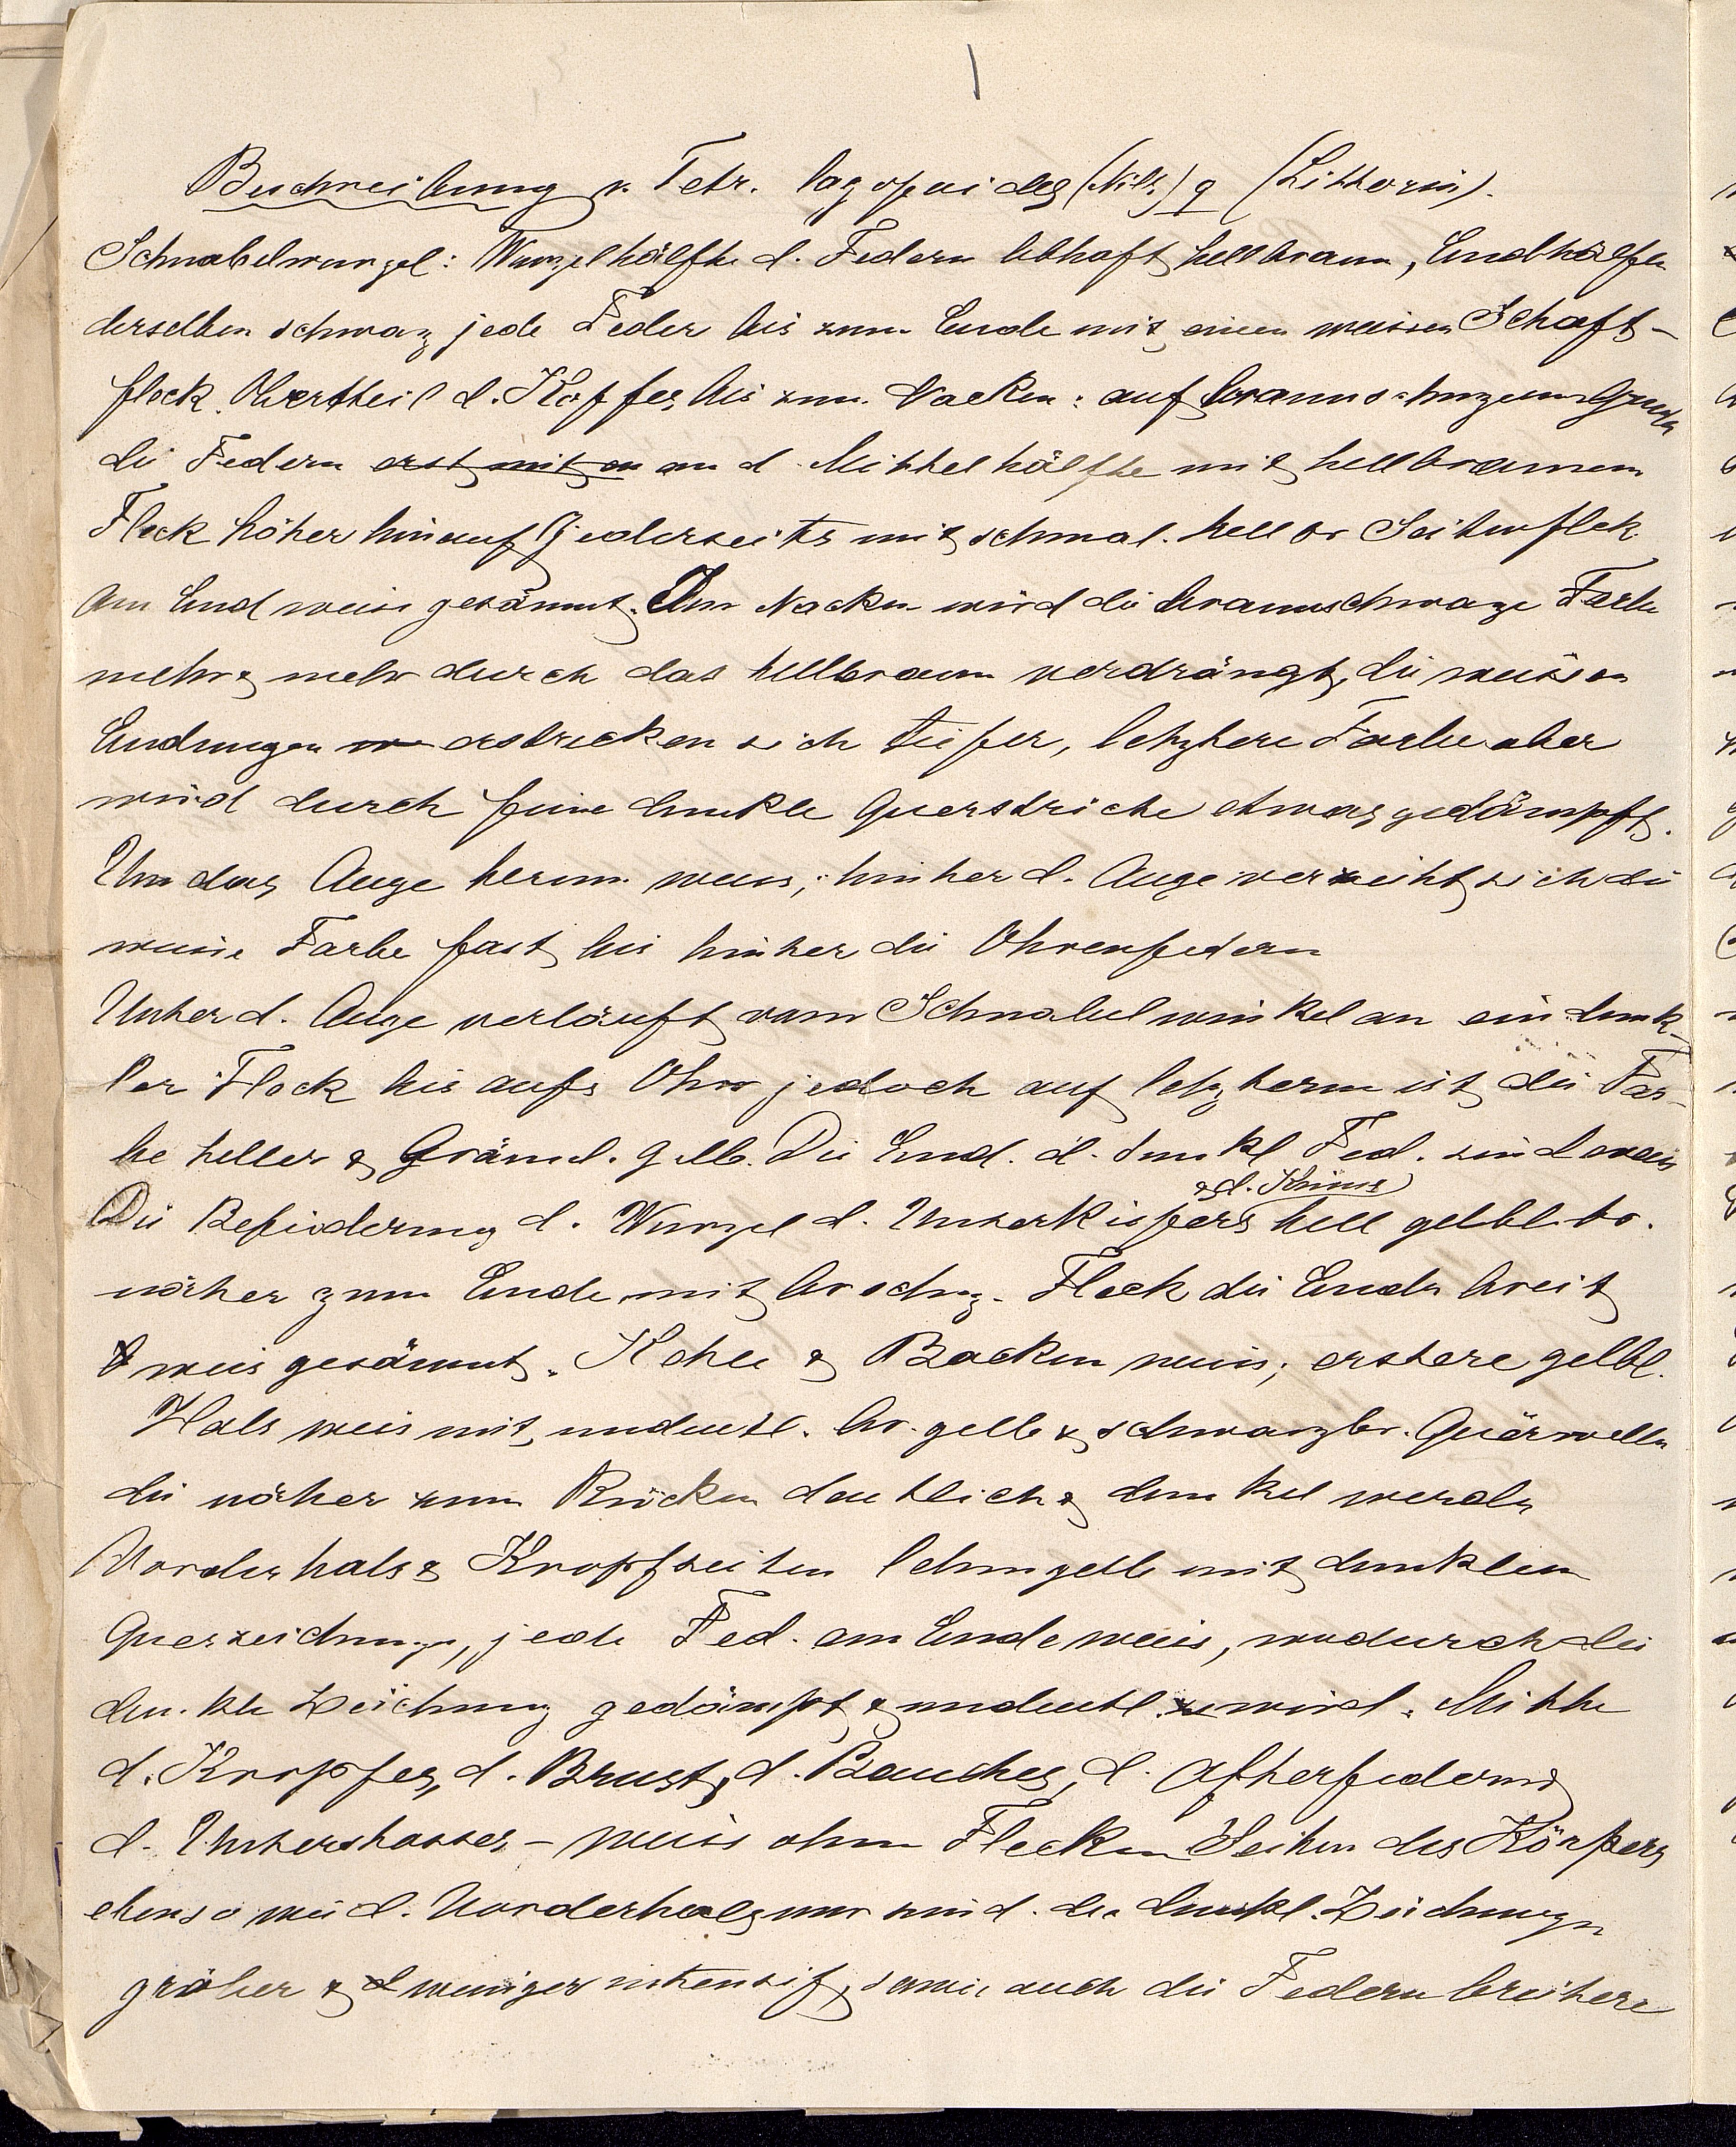 Beschreibung v. Tetr. lagopoides (Nils) ♀ (Littorin).
Schnabelwurzel: Wurzelhälfte d. Federn lebhaft hellbraun, Endhälften
derselben schwarz jede Feder bis zum Ende mit einen weissen Schaft-
fleck. Obertheil d. Kopfes bis zum Nacken: auf braunschwzem Grunde
die Federn erst mit an an d. Mittelhälfte mit hellbraunem
Fleck höher hinauf jederseits mit schmal. hell br Seitenflek
am End weiss gesäumt. Im Nacken wird die braunschwaze Farbe
mehr & mehr durch das hellbraun verdrängt, die weissen
Endungen erstrecken sich tiefer, letztere Farbe aber
wird durch feine dunkle Querstriche etwas gedämpft.
Um das Auge herum weiss; hinter d. Auge verzieht sich die
weisse Farbe fast bis hinter die Ohrenfedern
Unter d. Auge verläuft vom Schnabelwinkel an ein dunk-
ler Fleck bis aufs Ohr jedoch auf letzterm ist die Far-
be heller & Gräul. gelb. Die End. d. dunkl Fed. sind weiss
& d. Kinns
Die Befiederung d. Wurzel d. Unterkiefers hell gelbl. br.
näher zum Ende mit br schwz. Fleck die Enden breit
weis gesäumt. Kehle & Backen weiss; erstere gelbl.
Hals weis mit undeutl. br. gelb & schwarzbr. Querwellen
die näher zum Rücken deutlich & dunkel werden
Vorderhals & Kropfseiten lehmgelb mit dunklen
Querzeichnungen, jede Fed. am Ende weiss, wodurch die
dunkle Zeichnung gedämpft & undeutl. wird. Mitte
d. Kropfes, d. Brust, d. Bauches, d. Afterfedern &
d. Unterstosses – weiss ohne Flecken Seiten des Körpers
ebenso wie d. Vorderhals nur sind die dunkl. Zeichnungen
gröber & weniger intensif, sowie auch die Federn breitere